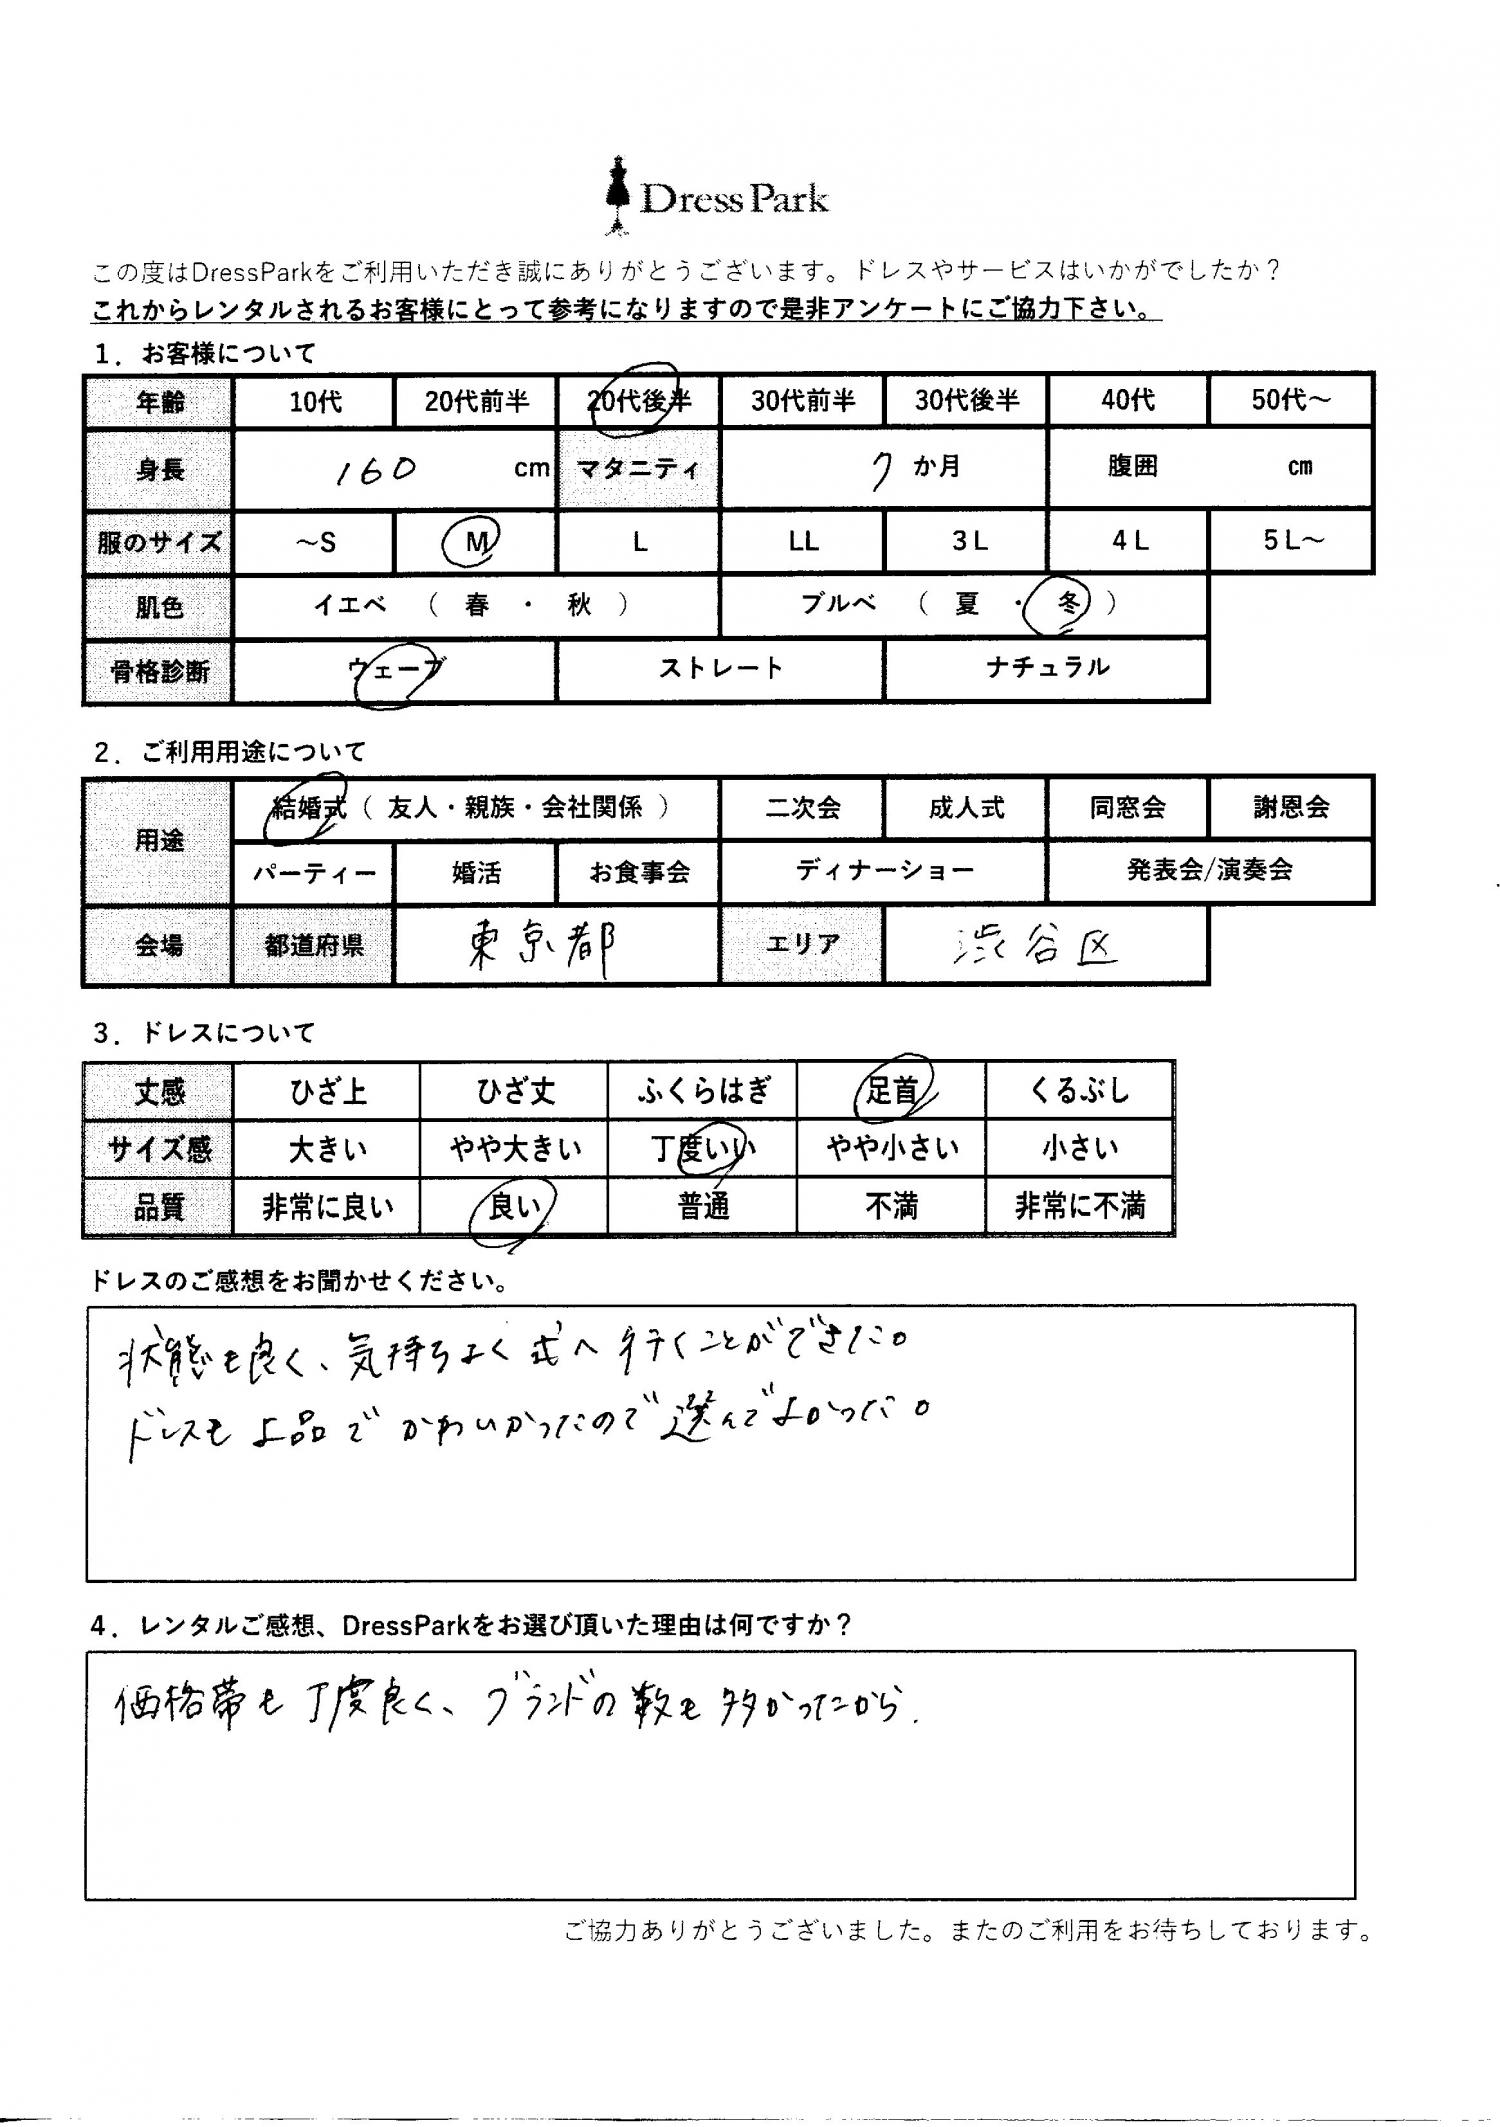 Dress Park
この度はDressParkをご利用いただき誠にありがとうございます。ドレスやサービスはいかがでしたか？
これからレンタルされるお客様にとって参考になりますので是非アンケートにご協力下さい。
1．お客様について
年齢 10代 20代前半 20代後半 30代前半 30代後半 40代 50代～
身長 160 cm マタニティ 7 か月 腹囲 cm
服のサイズ ～S M L LL 3L 4L 5L～
肌色 イエベ （ 春 ・ 秋 ） ブルベ （ 夏 ・ 冬 ）
骨格診断 ウェーブ ストレート ナチュラル
2．ご利用用途について
用途 結婚式（ 友人・親族・会社関係 ） 二次会 成人式 同窓会 謝恩会
パーティー 婚活 お食事会 ディナーショー 発表会/演奏会
会場 都道府県 東京都 エリア 渋谷区
3．ドレスについて
丈感 ひざ上 ひざ丈 ふくらはぎ 足首 くるぶし
サイズ感 大きい やや大きい 丁度いい やや小さい 小さい
品質 非常に良い 良い 普通 不満 非常に不満
ドレスのご感想をお聞かせください。
状態も良く、気持ちよく式へ行くことができた。
ドレスも上品でかわいかったので選んでよかった。
4．レンタルご感想、DressParkをお選び頂いた理由は何ですか？
価格帯も丁度良く、ブランドの数も多かったから.
ご協力ありがとうございました。またのご利用をお待ちしております。